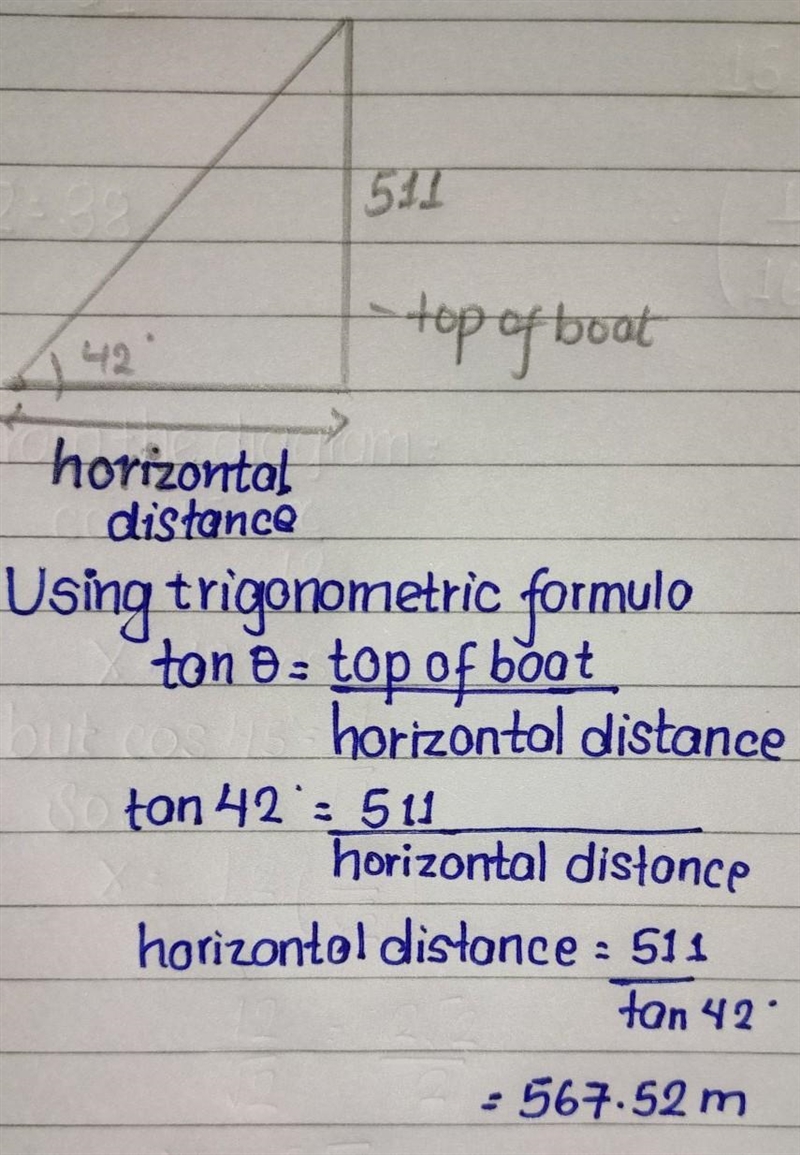 511
-top of boat
42°
horizontal
distance
Using trigonometric formulo
tan θ = top of boat
horizontal distance
tan 42° = 511
horizontal distance
horizontal distance = 511
tan 42°
= 567.52 m